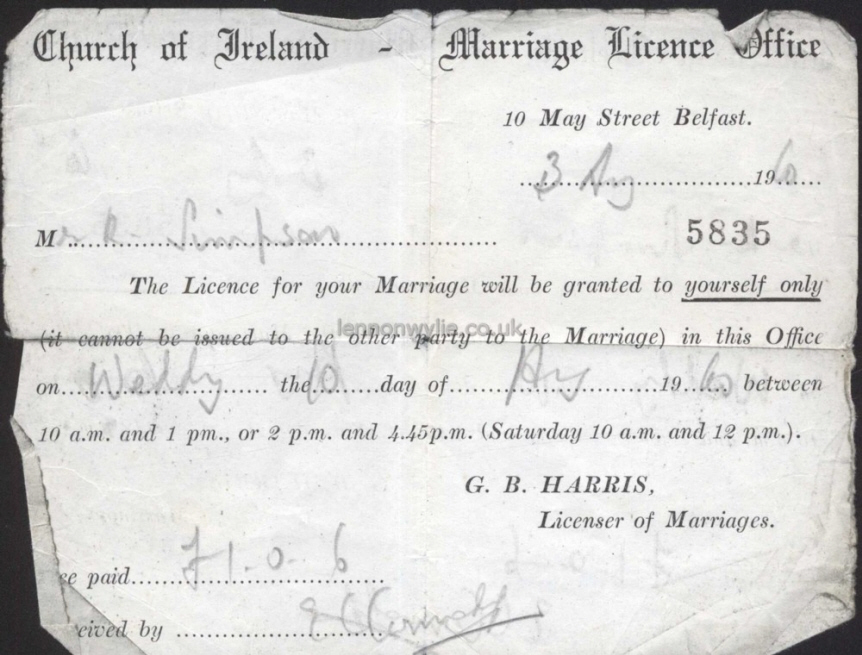 Church of Ireland - Marriage Licence Office
10 May Street Belfast.
3 Aug 1960
Mr R. Simpson 5835
The Licence for your Marriage will be granted to yourself only
lennonwylie.co.uk
(it cannot be issued to the other party to the Marriage) in this Office
on Weddy the 10 day of Aug 1960 between
10 a.m. and 1 pm., or 2 p.m. and 4.45p.m. (Saturday 10 a.m. and 12 p.m.).
G. B. HARRIS,
Licenser of Marriages.
ee paid £1.0.6
ceived by